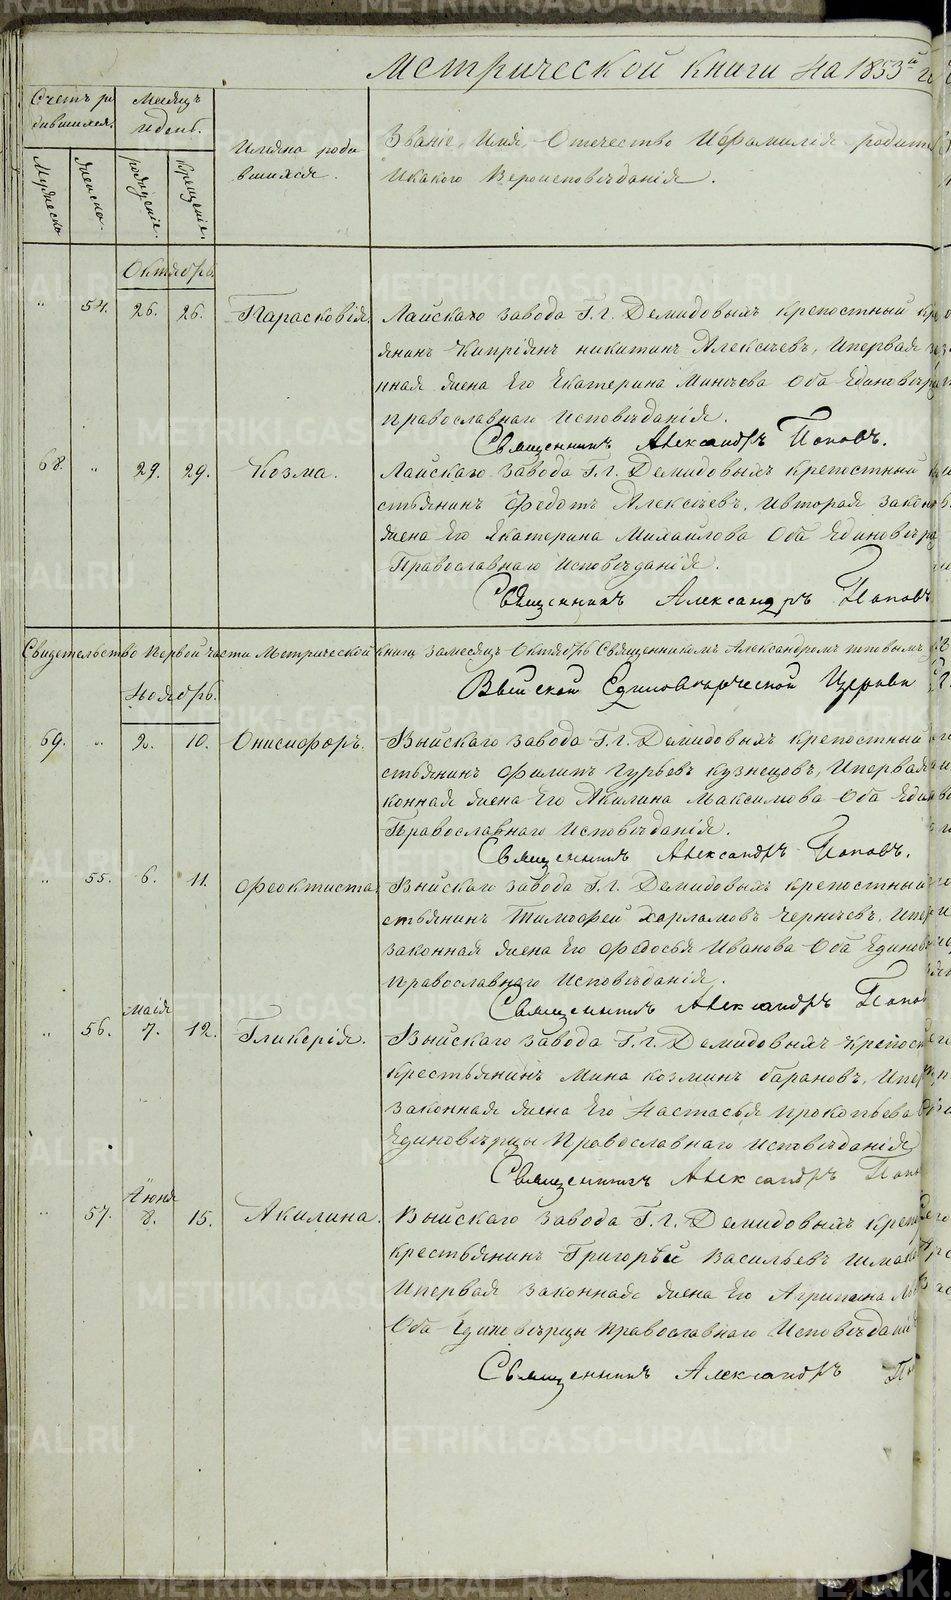 Метрической книги на 1853й го
Счетъ ро
дившихся.
Месяцъ
и день.
Имяна роди
вшихся.
Званіе, Имя, Отечество и Фамилія родите
и какого Вероисповѣданія.
Мужеска
Женска.
рожденіе.
Крещеніе.
Октябрь.
" 54. 26. 26. Парасковія. Лайскаго завода Г.г. Демидовыхъ крепостный кре
янинъ Кипріянъ никитинъ Алексѣевъ, и первая за
нная жена Его Екатерина Минѣева Оба Единовѣр
православнаго исповѣданія.
Священникъ Александръ Поповъ.
68. " 29. 29. Козма. Лайскаго завода Г.г. Демидовыхъ крепостный к
стьянинъ Федотъ Алексѣевъ, и вторая закон
жена Его Екатерина Михаилова Оба Единовѣр
Православнаго исповѣданія.
Священникъ Александръ Поповъ
Свидетельство первой части Метрической книги за месяцъ Октябрь Священникомъ Александромъ поповымъ
Выйской Единовѣрческой Церкви
Ноябрь.
69. " 2. 10. Онисифоръ. Выйскаго завода Г.г. Демидовыхъ крепостный
стьянинъ Филипъ Гурьевъ кузнецовъ, и первая
конная жена Его Акилина Максимова Оба Един
Православнаго исповѣданія.
Священникъ Александръ Поповъ.
" 55. 6. 11. Феоктиста. Выйскаго завода Г.г. Демидовыхъ крепостный
стьянинъ Тимофей харламовъ черничевъ, и пер
законная жена Его Федосья Иванова Оба Единов
православнаго исповѣданія.
Священникъ Александръ Попо
маія
" 56. 7. 12. Гликерія. Выйскаго завода Г.г. Демидовыхъ крепост
крестьянинъ Мина козминъ барановъ, и пер
законная жена Его Настасья прокопьева О
Единовѣрцы православнаго исповѣданія
Священникъ Александръ Попо
Июня
" 57. 8. 15. Акилина. Выйскаго завода Г.г. Демидовыхъ крепо
крестьянинъ Григорьей Васильевъ
и первая законная жена Его Агрипина
Оба Единовѣрцы православнаго исповѣданія
Священникъ Александръ По
METRIKI.GASO-URAL.RU